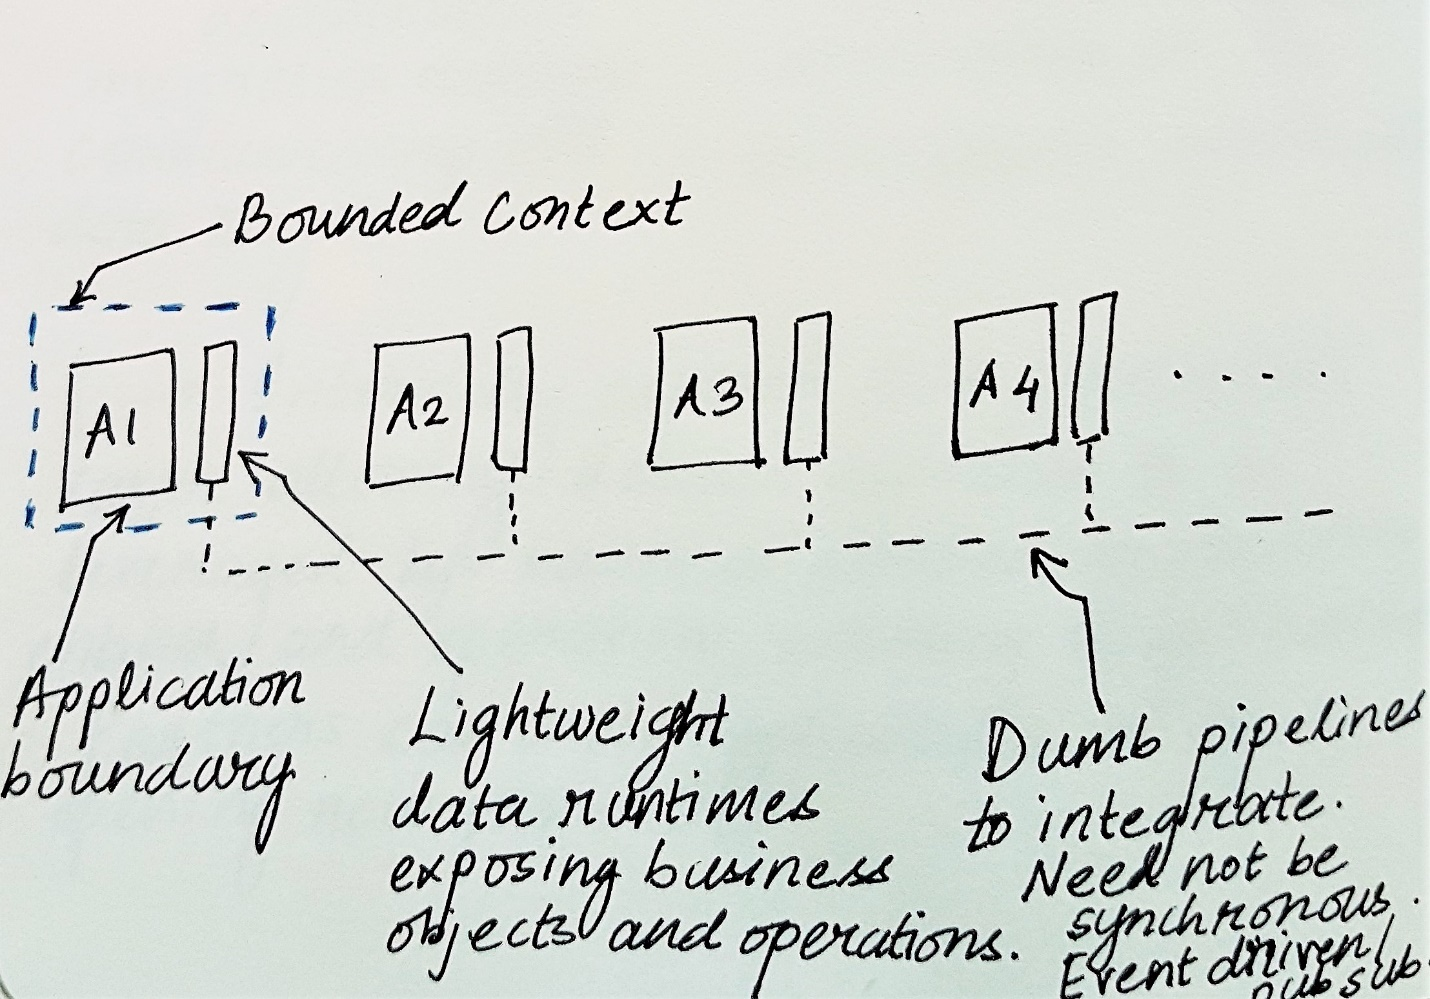 Bounded Context
A1
A2
A3
A4
. . . .
Application
boundary
Lightweight
data runtimes
exposing business
objects and operations.
Dumb pipelines
to integrate.
Need not be
synchronous.
Event driven/
pub sub